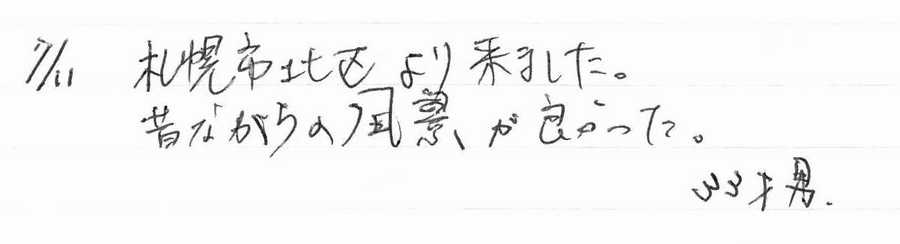 7/11 札幌市北区より来ました。
昔ながらの風景が良かった。
33才男.